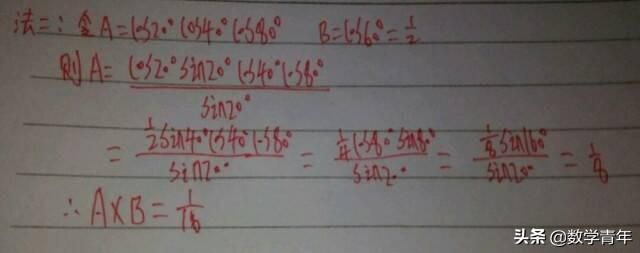 法二: 令 A=cos20°cos40°cos80° B=cos60°=1/2
则 A= cos20°sin20°cos40°cos80°/sin20°
= 1/2sin40°cos40°cos80°/sin20° = 1/4cos80°sin80°/sin20° = 1/8sin160°/sin20° = 1/8
∴ A×B=1/16
头条 @数学青年